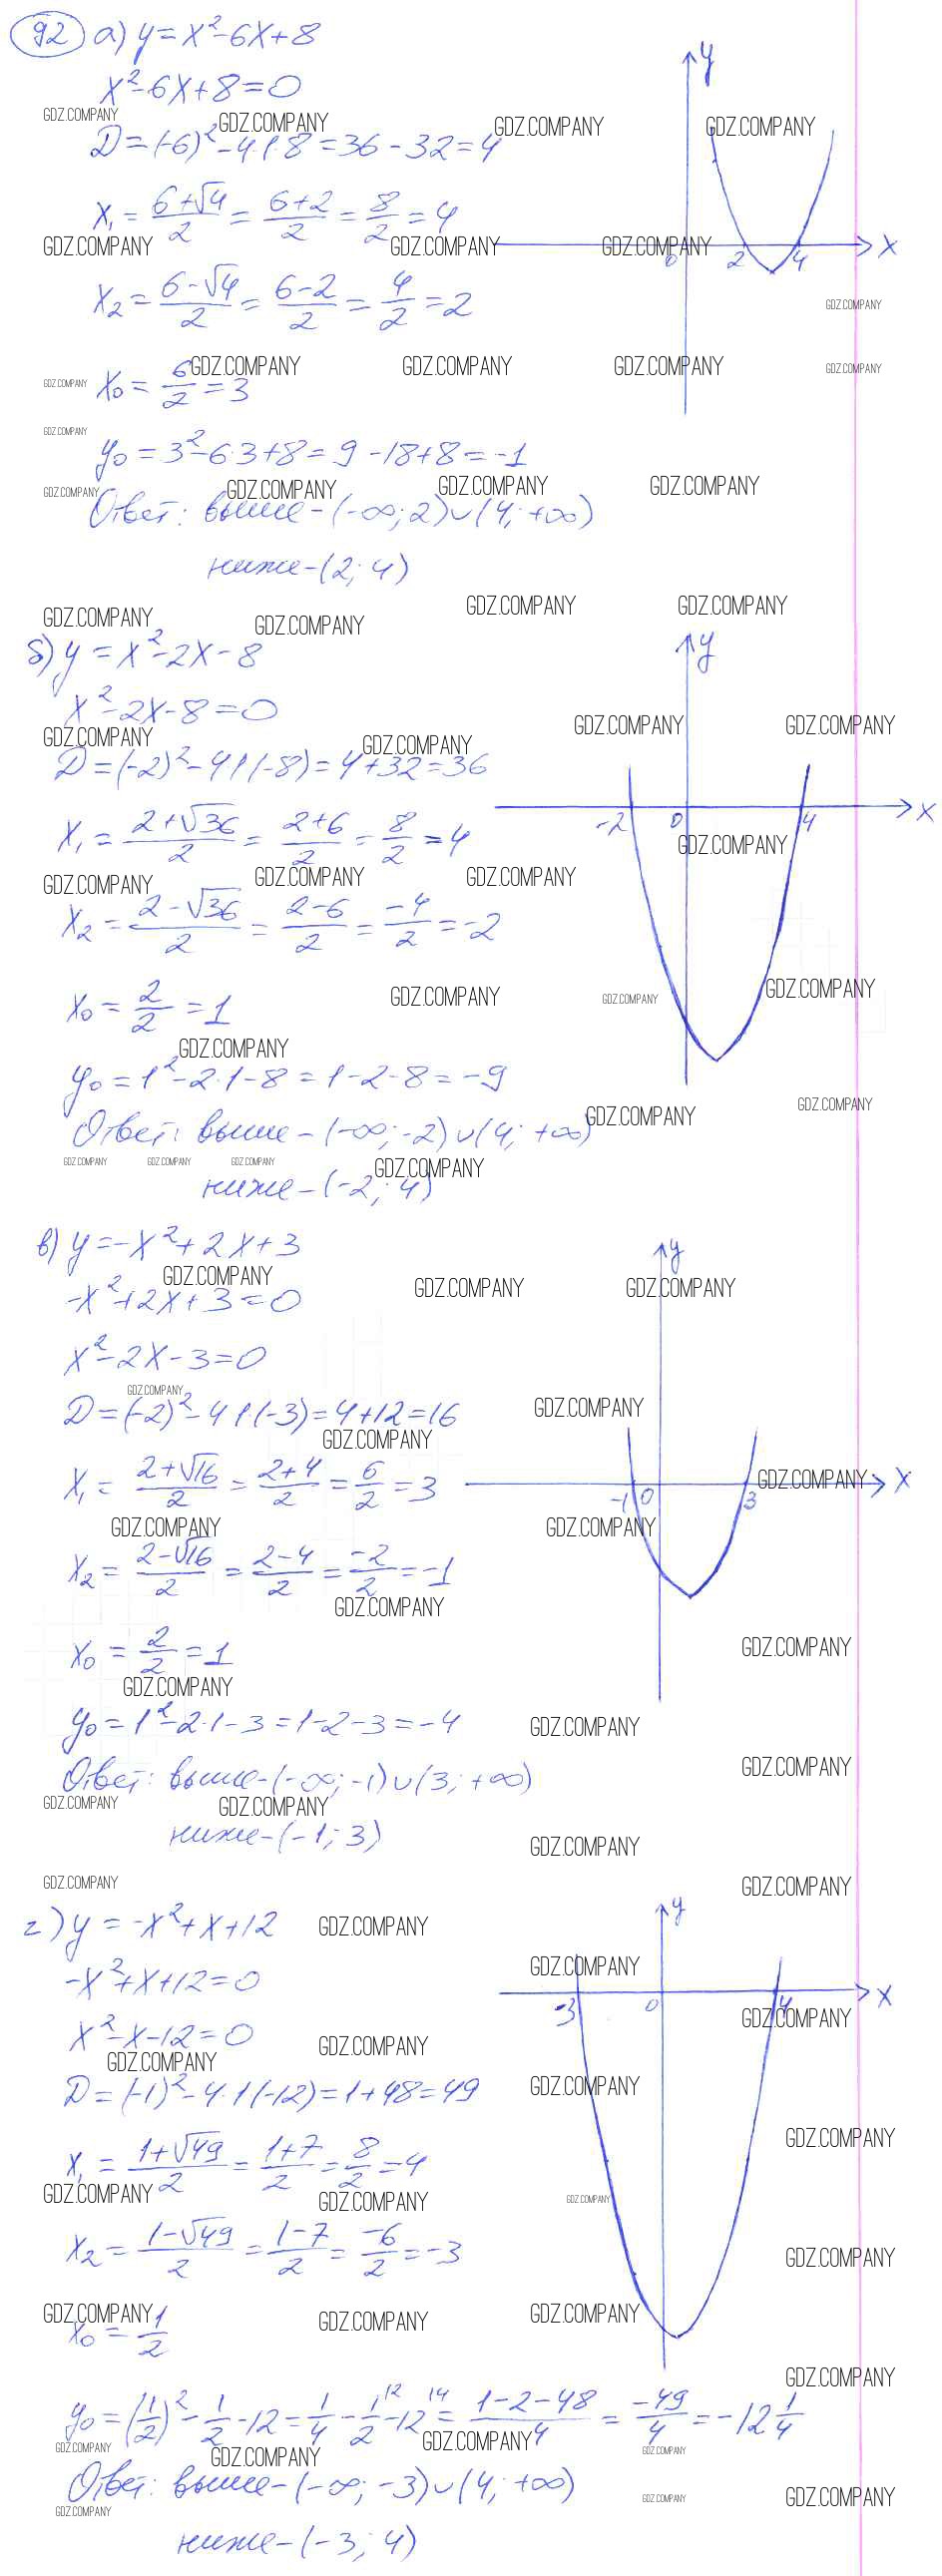 92 а) y = x² - 6x + 8
x² - 6x + 8 = 0
D = (-6)² - 4·1·8 = 36 - 32 = 4
x₁ = (6+√4)/2 = (6+2)/2 = 8/2 = 4
x₂ = (6-√4)/2 = (6-2)/2 = 4/2 = 2
x₀ = 6/2 = 3
y₀ = 3² - 6·3 + 8 = 9 - 18 + 8 = -1
Ответ: выше - (-∞; 2)∪(4; +∞)
ниже - (2; 4)
y
x
0 2 4
б) y = x² - 2x - 8
x² - 2x - 8 = 0
D = (-2)² - 4·1·(-8) = 4 + 32 = 36
x₁ = (2+√36)/2 = (2+6)/2 = 8/2 = 4
x₂ = (2-√36)/2 = (2-6)/2 = -4/2 = -2
x₀ = 2/2 = 1
y₀ = 1² - 2·1 - 8 = 1 - 2 - 8 = -9
Ответ: выше - (-∞; -2)∪(4; +∞)
ниже - (-2; 4)
y
x
-2 0 4
в) y = -x² + 2x + 3
-x² + 2x + 3 = 0
x² - 2x - 3 = 0
D = (-2)² - 4·1·(-3) = 4 + 12 = 16
x₁ = (2+√16)/2 = (2+4)/2 = 6/2 = 3
x₂ = (2-√16)/2 = (2-4)/2 = -2/2 = -1
x₀ = 2/2 = 1
y₀ = 1² - 2·1 - 3 = 1 - 2 - 3 = -4
Ответ: выше - (-∞; -1)∪(3; +∞)
ниже - (-1; 3)
y
x
-1 0 3
г) y = -x² + x + 12
-x² + x + 12 = 0
x² - x - 12 = 0
D = (-1)² - 4·1(-12) = 1 + 48 = 49
x₁ = (1+√49)/2 = (1+7)/2 = 8/2 = 4
x₂ = (1-√49)/2 = (1-7)/2 = -6/2 = -3
x₀ = 1/2
y₀ = (1/2)² - 1/2 - 12 = 1/4 - 1/2 - 12 = (1-2-48)/4 = -49/4 = -12 1/4
Ответ: выше - (-∞; -3)∪(4; +∞)
ниже - (-3; 4)
y
x
-3 0 4
GDZ.COMPANY